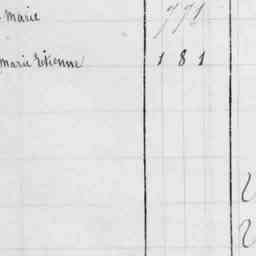 Marie 771
Marie Etienne 181